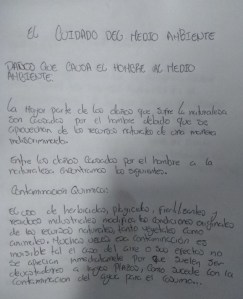 EL CUIDADO DEL MEDIO AMBIENTE
DAÑOS QUE CAUSA EL HOMBRE AL MEDIO
AMBIENTE
La mayor parte de los daños que sufre la naturaleza
son causados por el hombre debido que se
aprovechan de los recursos naturales de una manera
indiscriminada.
Entre los daños causados por el hombre a la
naturaleza encontramos los siguientes.
Contaminación Química:
El uso de herbicidas, plaguicidas, fertilizantes y
residuos industriales modifica las condiciones originales
de los recursos naturales, tanto vegetales como
animales. Muchas veces esa contaminación es
invisible tal el caso del aire o sus efectos no
se aprecian inmediatamente por que suelen ser
devastadores a largo plazo, como sucede con la
contaminación del agua para el consumo...